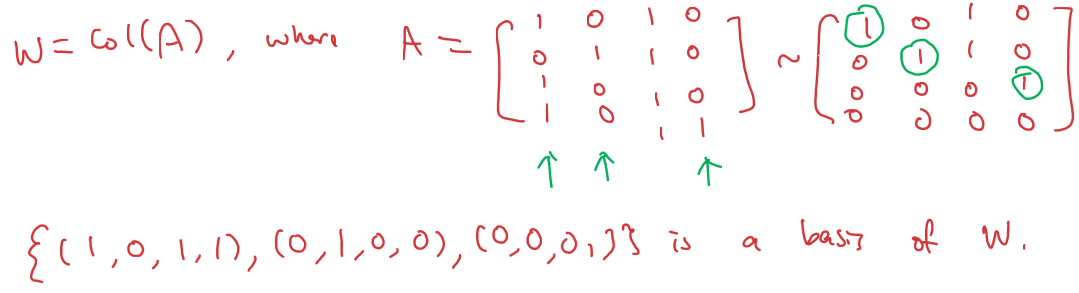 W = Col(A), where A = [1 0 1 0 ~ [1 0 1 0
0 1 1 0 0 1 1 0
1 0 1 0 0 0 0 1
1 0 1 1] 0 0 0 0]
↑ ↑ ↑
{(1,0,1,1), (0,1,0,0), (0,0,0,1)} is a basis of W.